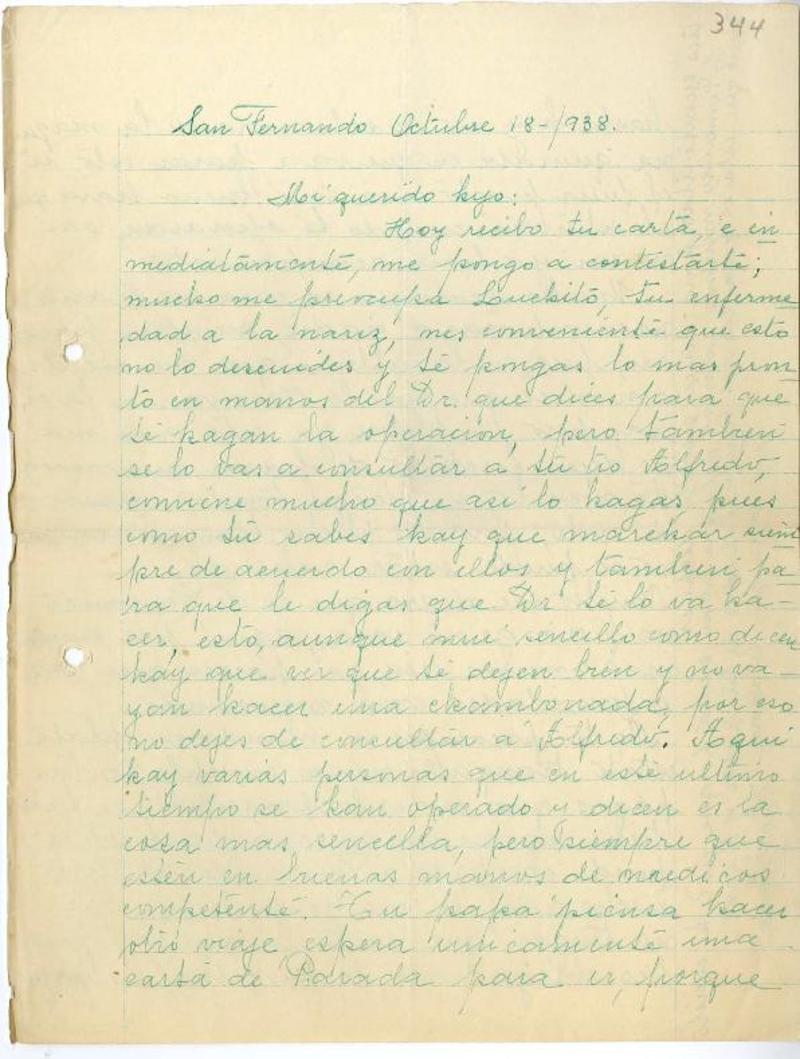 344
San Fernando Octubre 18-/938.
Mi querido hijo:
Hoy recibo tu carta, e in
mediatamente, me pongo a contestarte;
mucho me preocupa Luchito, tu enferme
dad a la nariz, nes conveniente que esto
no lo descuides y te pongas lo mas pron
to en manos del Dr. que dices para que
te hagan la operacion, pero tambien
se lo vas a consultar a tu tio Alfredo,
conviene mucho que asi lo hagas, pues
como tu sabes hay que marchar siem
pre de acuerdo con ellos y tambien pa
ra que le digas que Dr te lo va ha-
cer, esto, aunque mui sencillo como dicen
hay que ver que te dejen bien y no va-
yan hacer una chambonada, por eso
no dejes de consultar a Alfredo. Aqui
hay varias personas que en este ultimo
tiempo se han operado y dicen es la
cosa mas sencilla, pero siempre que
estén en buenas manos de medicos
competente. Tu papa piensa hacer
otro viaje espera unicamente una
carta de Parada para ir, porque